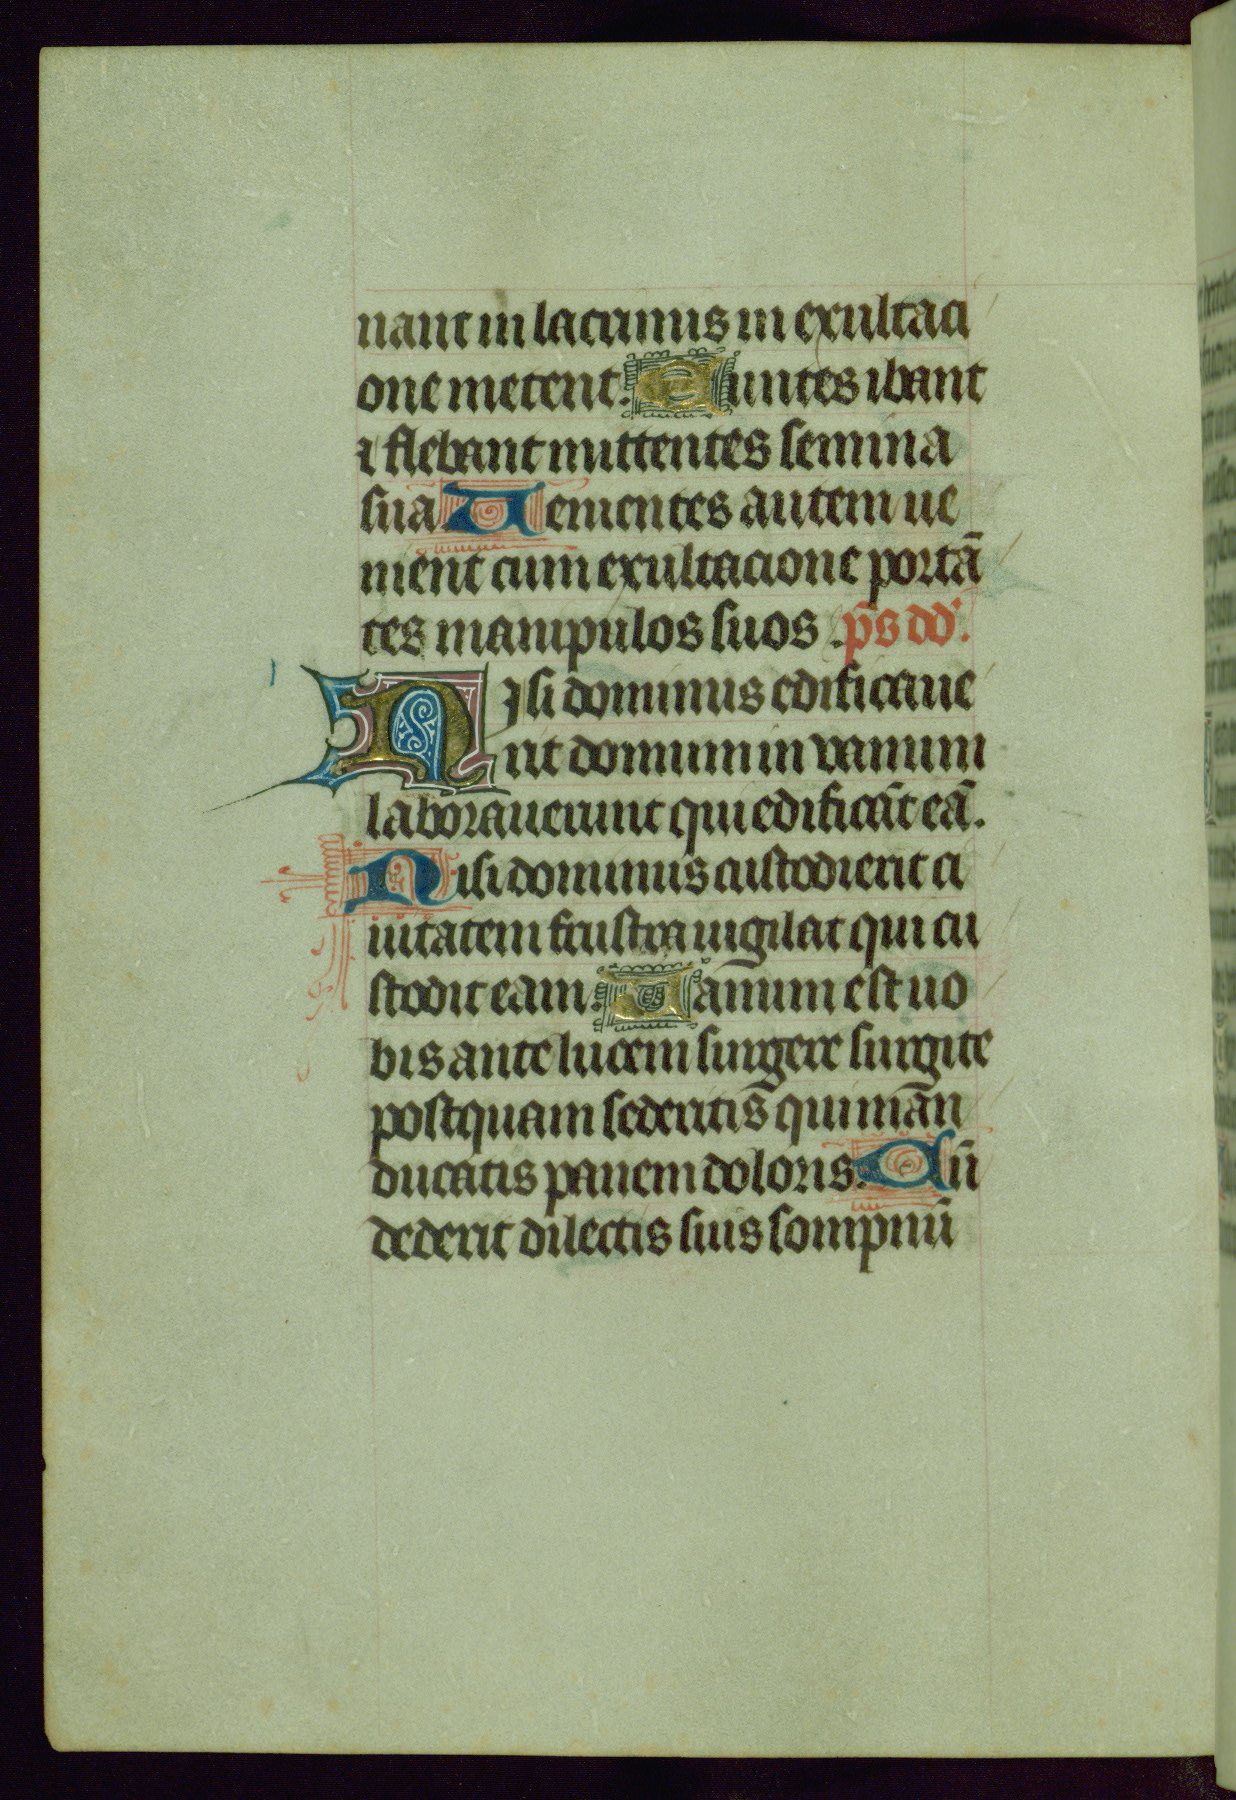 nant in lacrimis in exultaci
one metent. Euntes ibant
⁊ flebant mittentes semina
sua Uenientes autem ue
nient cum exultacione portā
tes manipulos suos . p̄s dd̄.
Nisi dominus edificaue
rit domum in vanum
laborauerunt qui edificāt eā.
Nisi dominus custodierit ci
uitatem frustra uigilat qui cu
stodit eam. Uanum est uo
bis ante lucem surgere surgite
postquam sederitis qui man
ducatis panem doloris. Cū
dederit dilectis suis sompnū